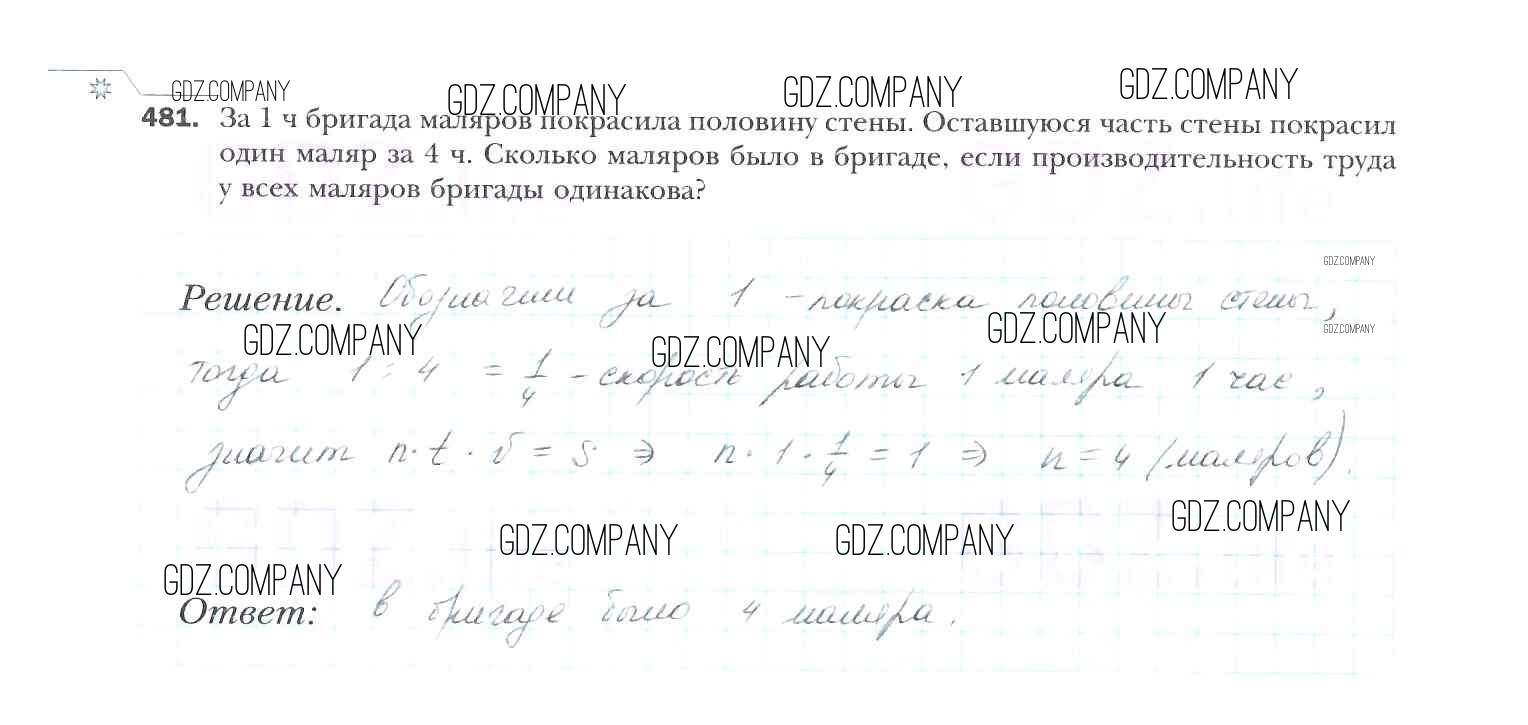 GDZ.COMPANY GDZ.COMPANY GDZ.COMPANY GDZ.COMPANY
481. За 1 ч бригада маляров покрасила половину стены. Оставшуюся часть стены покрасил
один маляр за 4 ч. Сколько маляров было в бригаде, если производительность труда
у всех маляров бригады одинакова?
GDZ.COMPANY
Решение. Обозначим за 1 - покраска половины стены,
GDZ.COMPANY GDZ.COMPANY GDZ.COMPANY GDZ.COMPANY
тогда 1 : 4 = 1/4 - скорость работы 1 маляра 1 час,
значит n · t · v = S ⇒ n · 1 · 1/4 = 1 ⇒ n = 4 (маляров).
GDZ.COMPANY GDZ.COMPANY GDZ.COMPANY
GDZ.COMPANY
Ответ: в бригаде было 4 маляра.